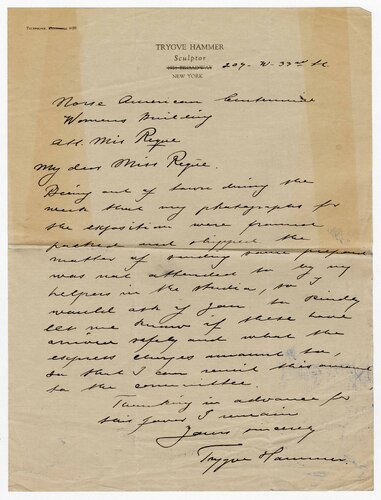 TRYGVE HAMMER
Sculptor
1931 BROADWAY
NEW YORK
207 - W - 33rd St.
Norse American Centennial
Womens Building
Att. Mis Reque
My dear Miss Reque.
Being out of town during the
week that my photographs for
the exposition were framed
packed and shipped the
matter of sending same prepaid
was not attended to by my
helpers in the studio, so I
would ask if you to kindly
let me know if these have
arrived safely and what the
express charges amount to,
so that I can remit this amount
to the committee.
Thanking in advance for
this favor I remain
Yours sincerely
Trygve Hammer.